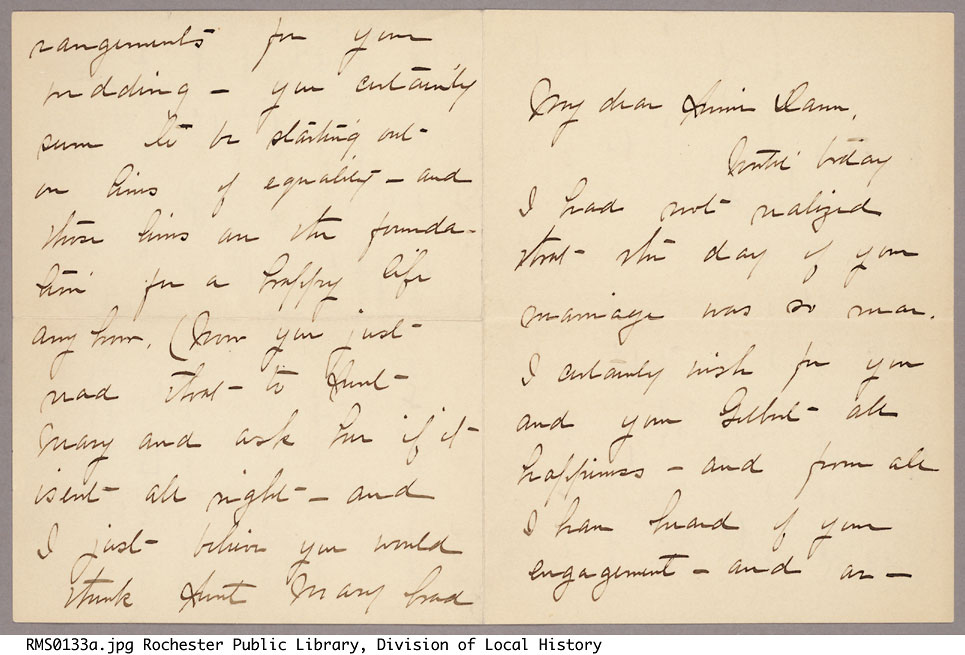 My dear Annie Dann,
Until today
I had not realized
that the day of your
marriage was so near.
I certainly wish for you
and your Gilbert all
happiness - and from all
I have heard of your
engagement - and ar-
rangements for your
wedding - you certainly
seem to be starting out
on lines of equality - and
those lines are the founda-
tion for a happy life
any how. (Now you just
read that to Aunt
Mary and ask her if it
isent all right - and
I just believe you would
think Aunt Mary had
RMS0133a.jpg Rochester Public Library, Division of Local History